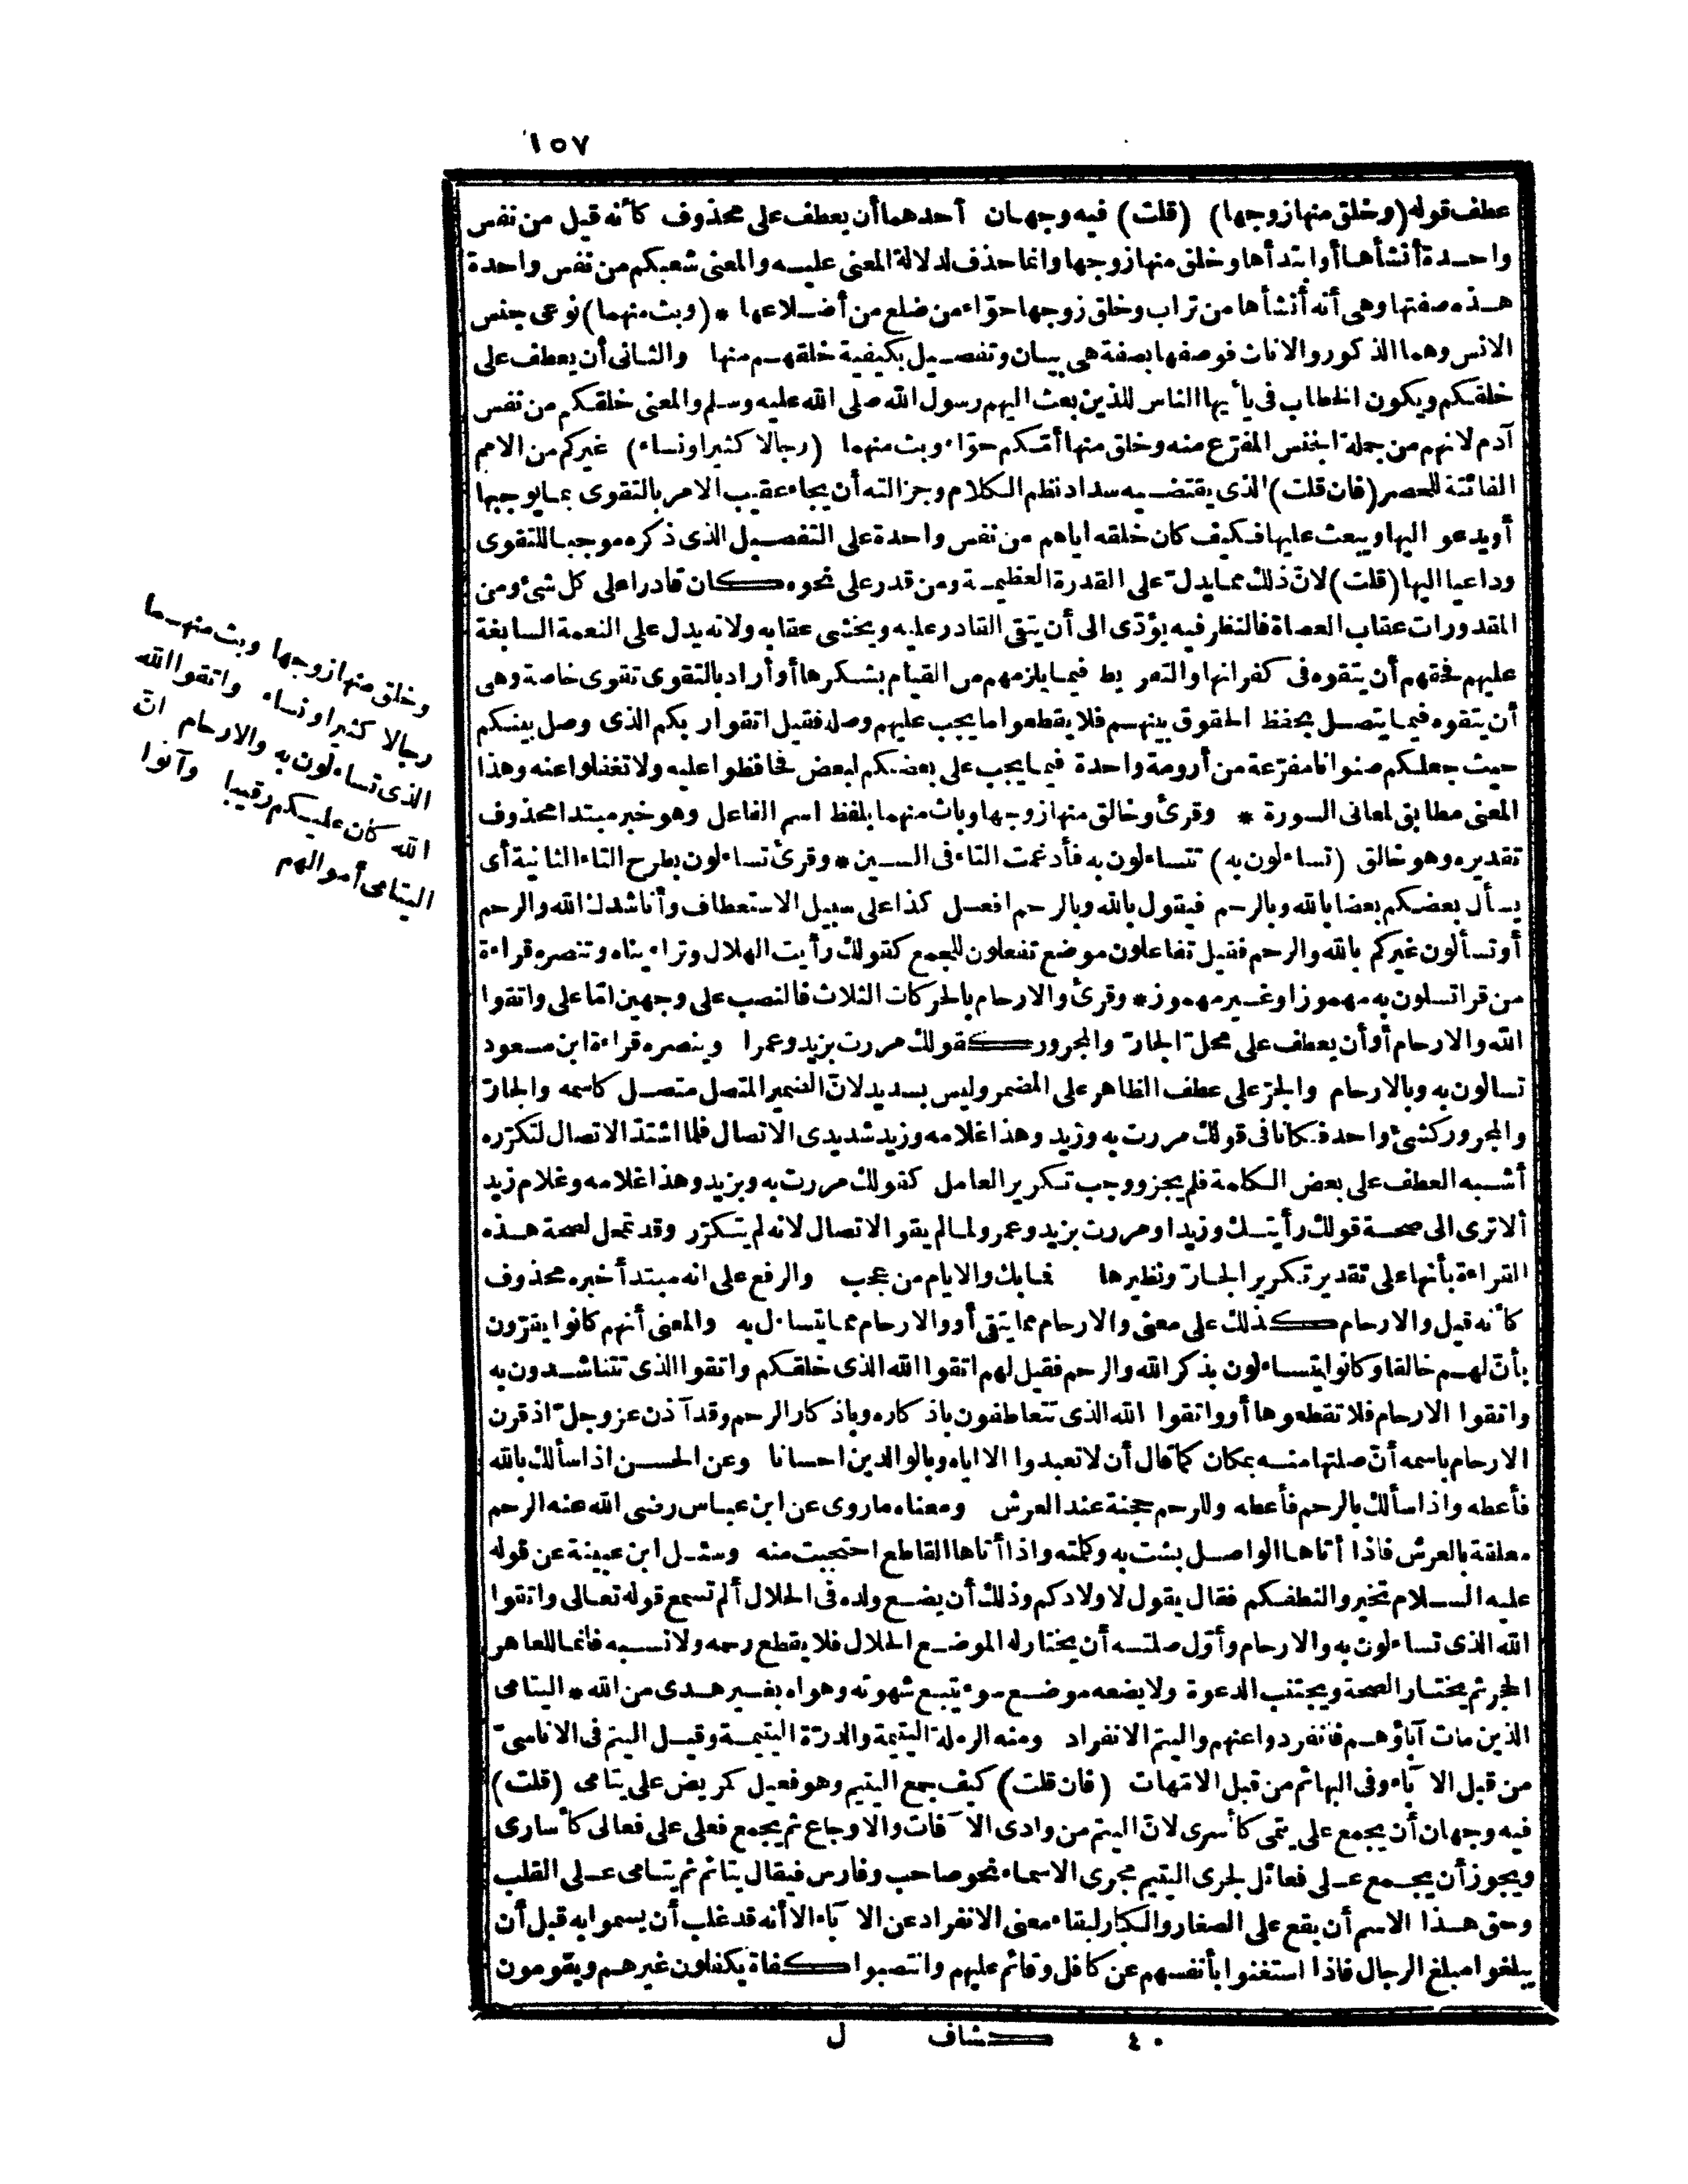 ١٥٧
عطف قوله (وخلق منها زوجها) (قلت) فيه وجهان أحدهما أن يعطف على محذوف كأنه قيل من نفس
واحدة أنشأها أو ابتدأها وخلق منها زوجها وانما حذف لدلالة المعنى عليه والمعنى شعبكم من نفس واحدة
هذه صفتها وهى أنه أنشأها من تراب وخلق زوجها حوّاء من ضلع من أضلاعها * (وبث منهما) نوعى جنس
الانس وهما الذكور والاناث فوصفها بصفة هى بيان وتفصيل لكيفية خلقهم منها والثانى أن يعطف على
خلقكم ويكون الخطاب فى يا أيها الناس للذين بعث اليهم رسول الله صلى الله عليه وسلم والمعنى خلقكم من نفس
آدم لانهم من جملة الجنس المفرّع منه وخلق منها أمّكم حوّاء وبث منهما (رجالا كثيرا ونساء) غيركم من الامم
الفائتة للحصر (فان قلت) الذى يقتضيه سداد نظم الكلام وجزالته أن يجاء عقيب الامر بالتقوى بما يوجبها
أو يدعو اليها ويبعث عليها فكيف كان خلقه اياهم من نفس واحدة على التفصيل الذى ذكره موجبا للتقوى
وداعيا اليها (قلت) لانّ ذلك مما يدلّ على القدرة العظيمة ومن قدر على نحوه كان قادرا على كل شئ ومن
المقدورات عقاب العصاة فالنظر فيه يؤدّى الى أن يتقى القادر عليه ويخشى عقابه ولانه يدل على النعمة السابغة
عليهم فحقهم أن يتقوه فى كفرانها والتفريط فيما يلزمهم من القيام بشكرها أو أراد بالتقوى تقوى خاصة وهى
أن يتقوه فيما يتصل بحفظ الحقوق بينهم فلا يقطعوا ما يجب عليهم وصله فقيل اتقوا ربكم الذى وصل بينكم
حيث جعلكم صنوانا مفرّعة من أرومة واحدة فيما يجب على بعضكم لبعض فحافظوا عليه ولا تغفلوا عنه وهذا
المعنى مطابق لمعانى السورة * وقرئ وخالق منها زوجها وباث منهما بلفظ اسم الفاعل وهو خبر مبتدا محذوف
تقديره وهو خالق (تساءلون به) تتساءلون به فأدغمت التاء فى السين * وقرئ تساءلون بطرح التاء الثانية أى
يسأل بعضكم بعضا بالله وبالرحم فيقول بالله وبالرحم افعل كذا على سبيل الاستعطاف وأناشدك الله والرحم
أو تسألون غيركم بالله والرحم فقيل تفاعلون موضع تفعلون للجمع كقولك رأيت الهلال وتراءيناه وتنصره قراءة
من قرأ تسلون به مهموزا وغير مهموز * وقرئ والارحام بالحركات الثلاث فالنصب على وجهين امّا على واتقوا
الله والارحام أو أن يعطف على محلّ الجارّ والمجرور كقولك مررت بزيد وعمرا وينصره قراءة ابن مسعود
تسالون به وبالارحام والجرّ على عطف الظاهر على المضمر وليس بسديد لانّ الضمير المتصل متصل كاسمه والجارّ
والمجرور كشئ واحد فكانا فى قولك مررت به وزيد وهذا غلامه وزيد شديدى الاتصال فلما اشتدّ الاتصال لتكرّره
أشبه العطف على بعض الكلمة فلم يجز ووجب تكرير العامل كقولك مررت به وبزيد وهذا غلامه وغلام زيد
ألا ترى الى صحة قولك رأيتك وزيدا ومررت بزيد وعمر ولما لم يقو الاتصال لانه لم يتكرّر وقد تمحل لصحة هذه
القراءة بأنها على تقدير تكرير الجارّ ونظيرها فما بك والايام من عجب والرفع على انه مبتدأ خبره محذوف
كأنه قيل والارحام كذلك على معنى والارحام مما يتقى أو والارحام مما يتساءل به والمعنى أنهم كانوا يقرّون
بأنّ لهم خالقا وكانوا يتساءلون بذكر الله والرحم فقيل لهم اتقوا الله الذى خلقكم واتقوا الذى تتناشدون به
واتقوا الارحام فلا تقطعوها أو واتقوا الله الذى تتعاطفون باذكاره وباذكار الرحم وقد آذن عز وجلّ اذ قرن
الارحام باسمه أنّ صلتها منه بمكان كما قال أن لا تعبدوا الا اياه وبالوالدين احسانا وعن الحسن اذا سألك بالله
فأعطه واذا سألك بالرحم فأعطه وللرحم حجنة عند العرش ومعناه ما روى عن ابن عباس رضى الله عنه الرحم
معلقة بالعرش فاذا أتاها الواصل بشت به وكلته واذا أتاها القاطع احتجبت منه وسئل ابن عيينة عن قوله
عليه السلام تخيروا لنطفكم فقال يقول لاولادكم وذلك أن يضع ولده فى الحلال ألم تسمع قوله تعالى واتقوا
الله الذى تساءلون به والارحام وأوّل صلته أن يختار له الموضع الحلال فلا يقطع رحمه ولا نسبه فانما للعاهر
الحجر ثم يختار الصحة ويجتنب الدعوة ولا يضعه موضع سوء يتبع شهوته وهواه بغير هدى من الله * اليتامى
الذين مات آباؤهم فانفردوا عنهم واليتم الانفراد ومنه الرملة اليتيمة والدرّة اليتيمة وقيل اليتم فى الاناسىّ
من قبل الآباء وفى البهائم من قبل الامّهات (فان قلت) كيف جمع اليتيم وهو فعيل كمريض على يتامى (قلت)
فيه وجهان أن يجمع على يتمى كأسرى لانّ اليتم من وادى الآفات والاوجاع ثم يجمع فعلى على فعالى كأسارى
ويجوز أن يجمع على فعائل لجرى اليتيم مجرى الاسماء نحو صاحب وفارس فيقال يتائم ثم يتامى على القلب
وحق هذا الاسم أن يقع على الصغار والكبار لبقاء معنى الانفراد عن الآباء الا أنه قد غلب أن يسموا به قبل أن
يبلغوا مبلغ الرجال فاذا استغنوا بأنفسهم عن كافل وقائم عليهم وانتصبوا كفاة يكفلون غيرهم ويقومون
وخلق منها زوجها وبث منهما
رجالا كثيرا ونساء واتقوا الله
الذى تساءلون به والارحام انّ
الله كان عليكم رقيبا وآتوا
اليتامى أموالهم
٤٠ كشاف ل